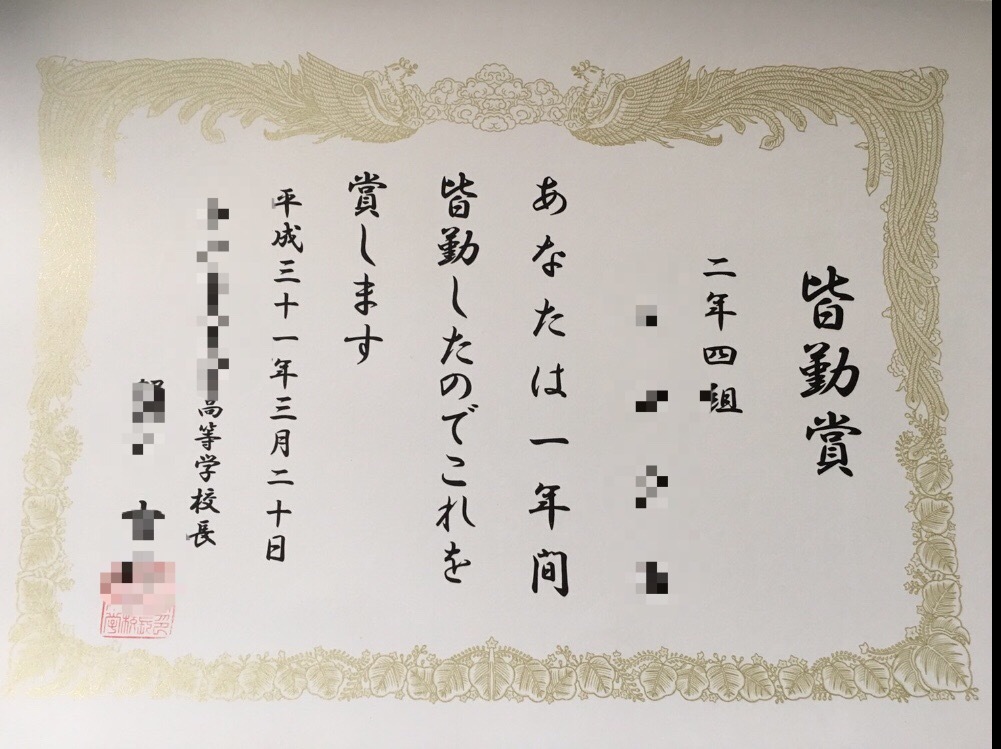 皆勤賞
二年四組
あなたは一年間
皆勤したのでこれを
賞します
平成三十一年三月二十日
高等学校長